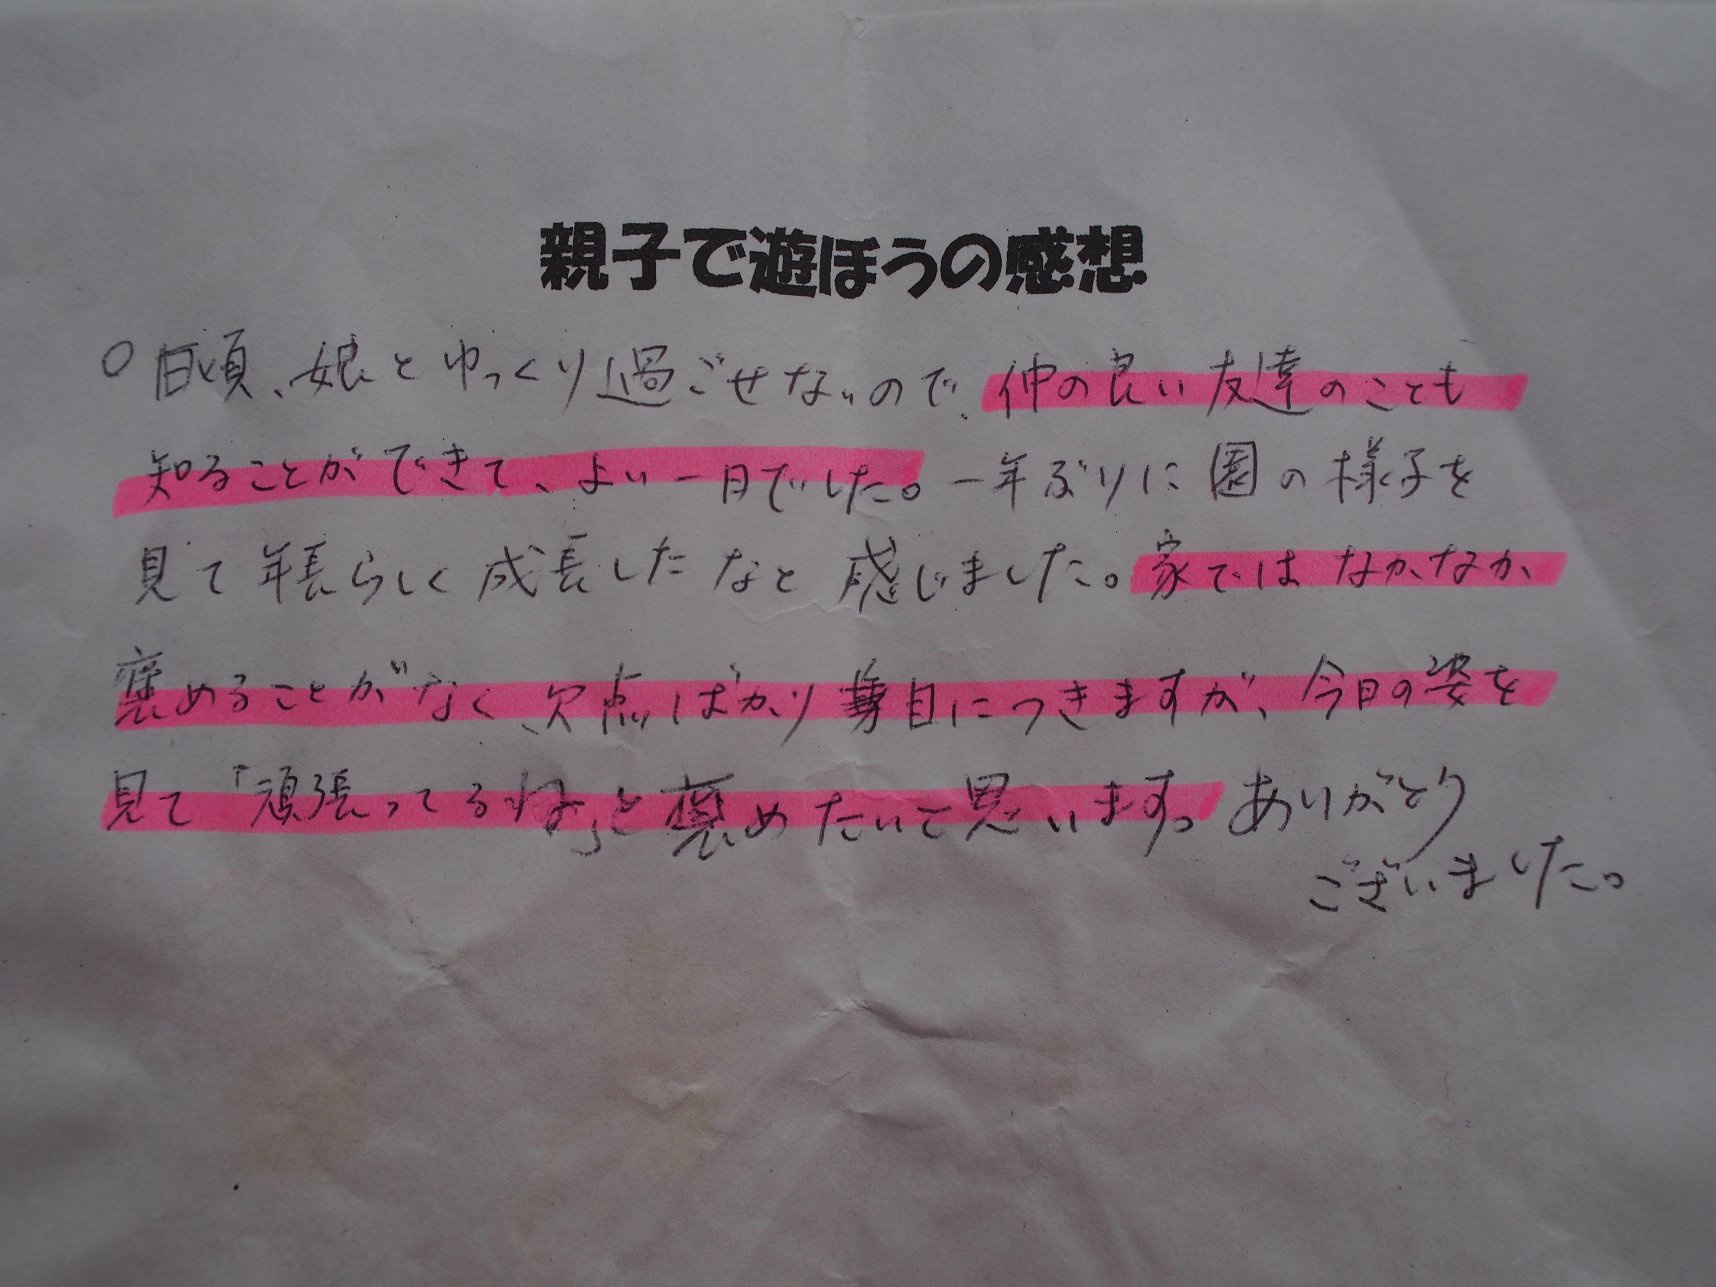 親子で遊ぼうの感想
○日頃、娘とゆっくり過ごせないので、仲の良い友達のことも
知ることができて、よい一日でした。一年ぶりに園の様子を
見て年長らしく成長したなと感じました。家ではなかなか
褒めることがなく、欠点ばかり目につきますが、今日の姿を
見て「頑張ってるね」と褒めたいと思います。ありがとう
ございました。